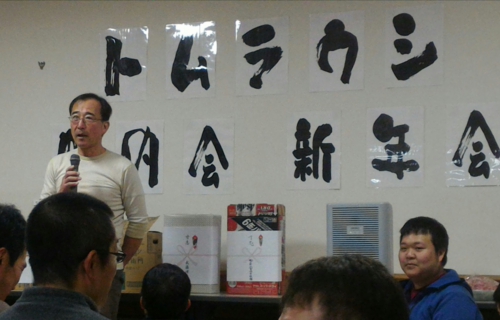 トムラウシ
町内会 新年会